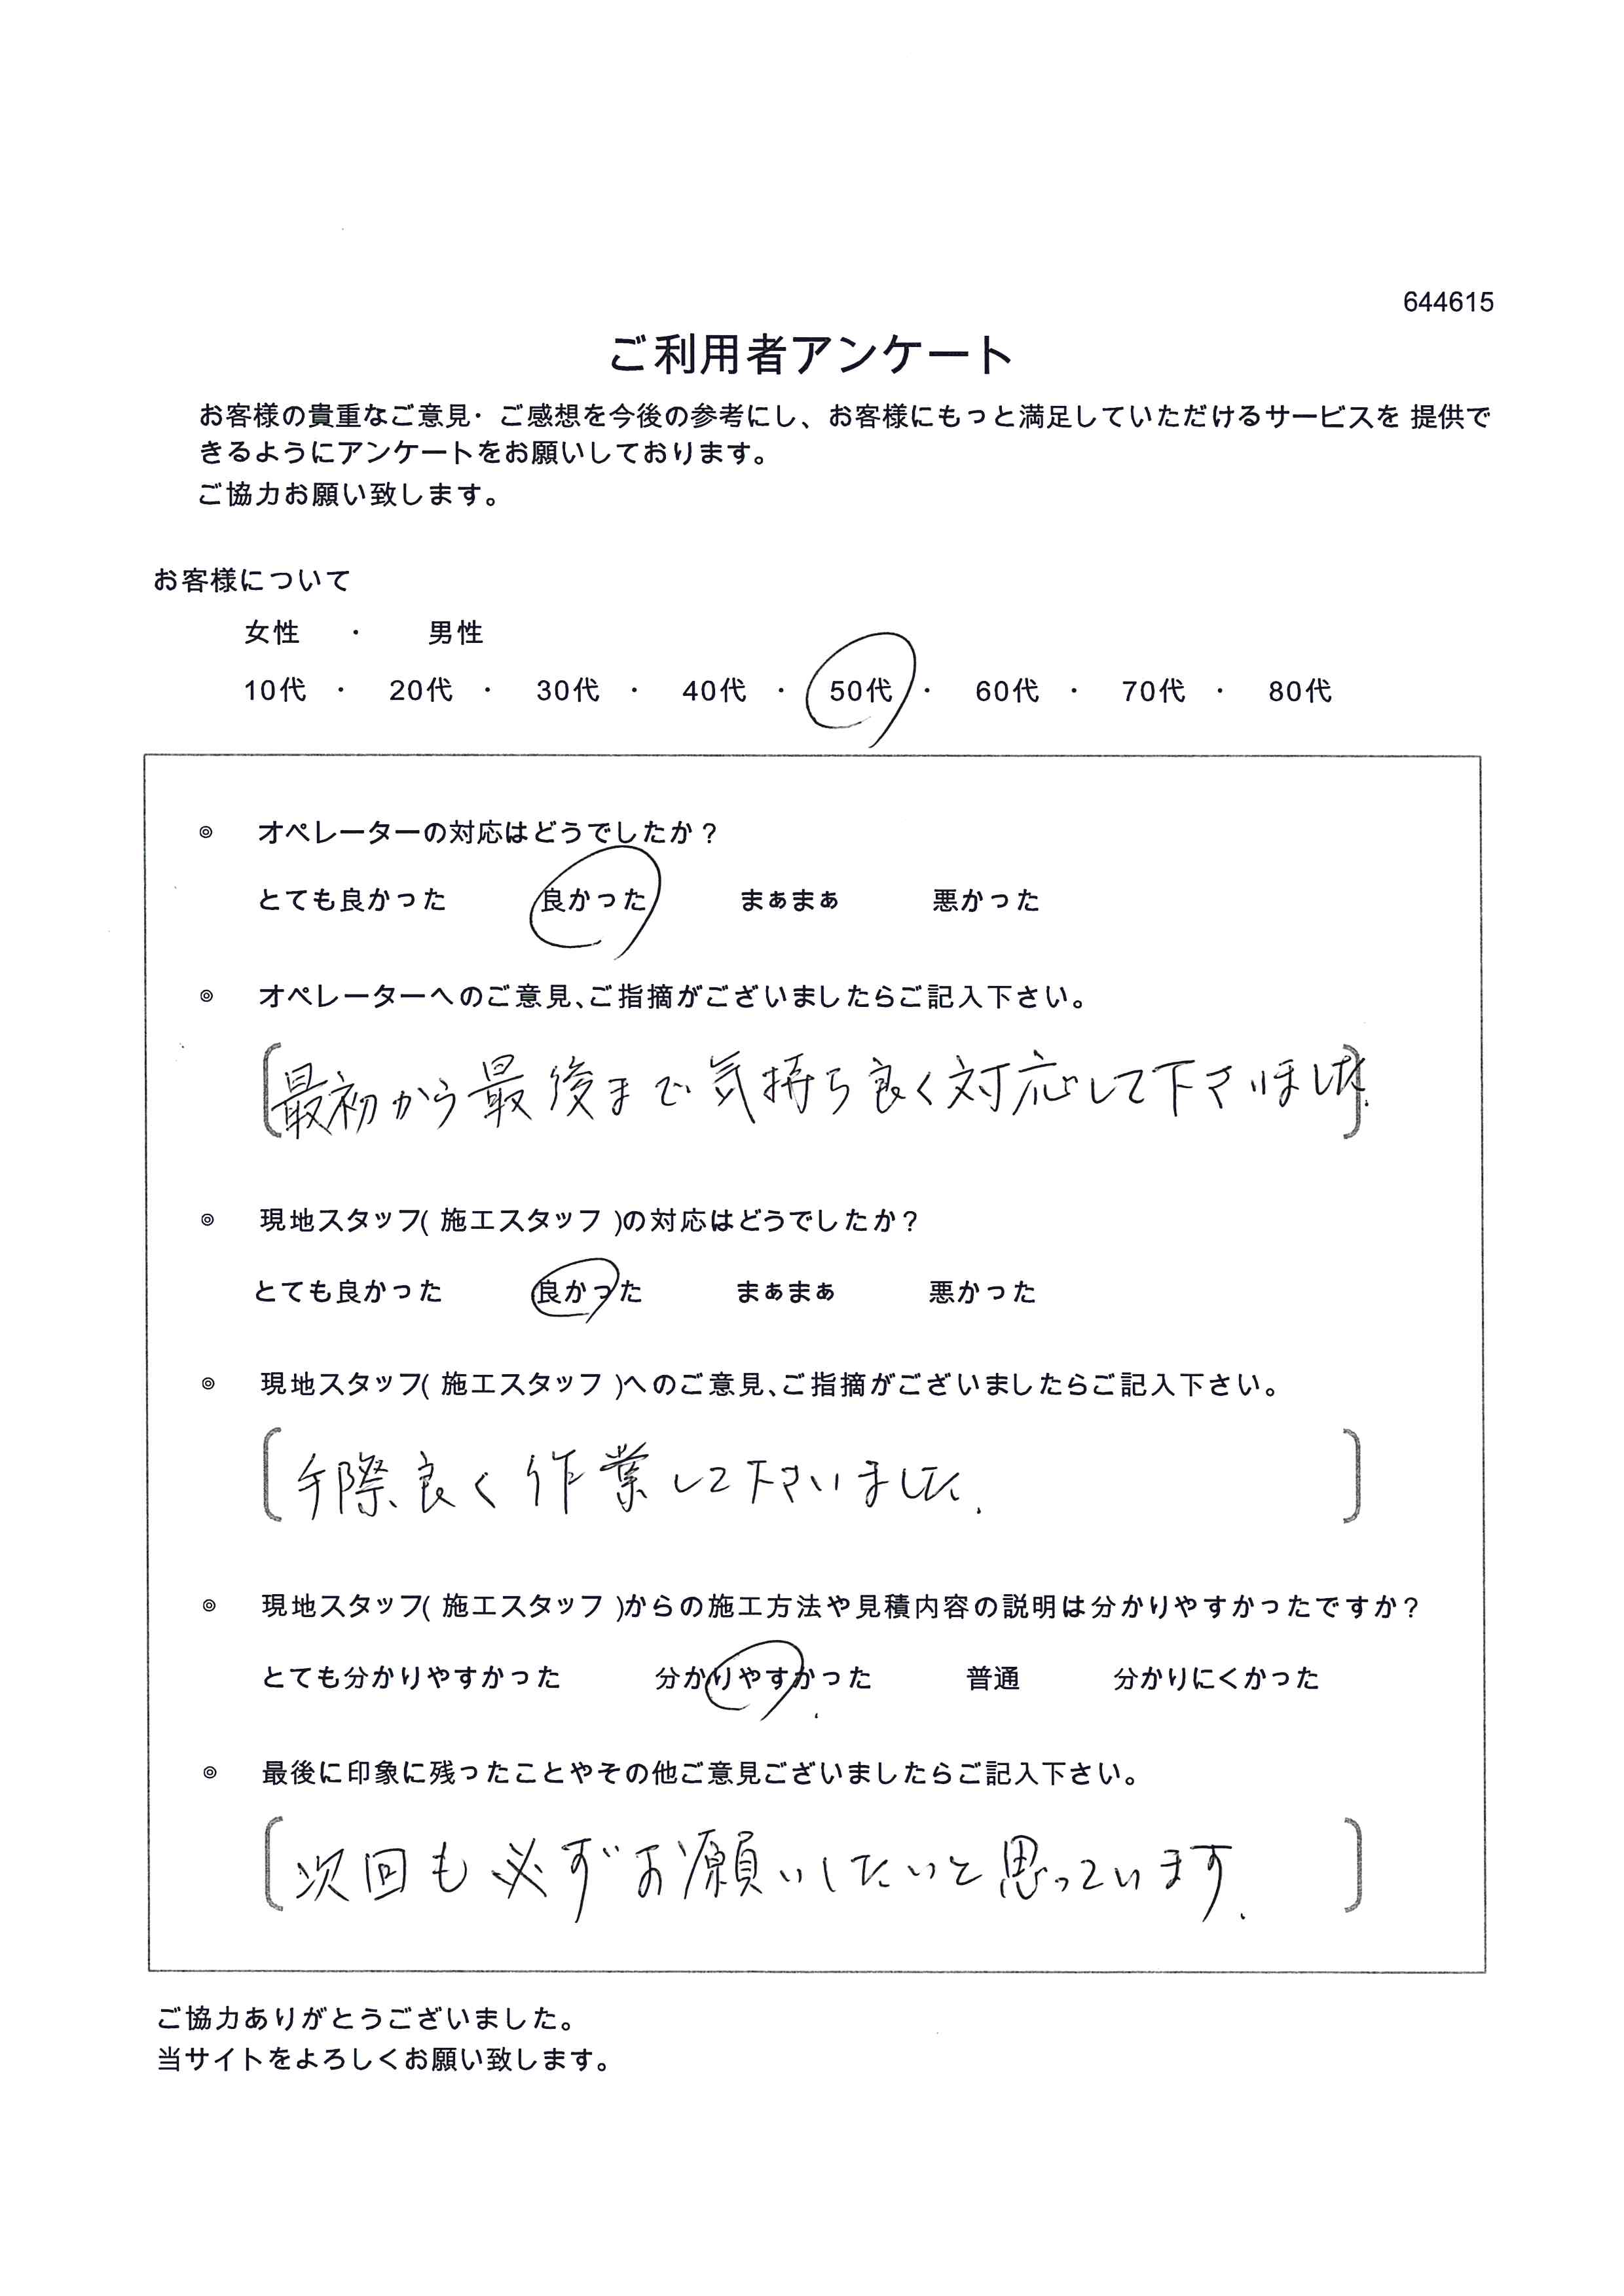 644615
ご利用者アンケート
お客様の貴重なご意見・ご感想を今後の参考にし、お客様にもっと満足していただけるサービスを 提供で
きるようにアンケートをお願いしております。
ご協力お願い致します。
お客様について
女性 ・ 男性
10代 ・ 20代 ・ 30代 ・ 40代 ・ 50代 ・ 60代 ・ 70代 ・ 80代
◎ オペレーターの対応はどうでしたか？
とても良かった 良かった まぁまぁ 悪かった
◎ オペレーターへのご意見、ご指摘がございましたらご記入下さい。
最初から最後まで気持ち良く対応して下さいました.
◎ 現地スタッフ( 施工スタッフ )の対応はどうでしたか？
とても良かった 良かった まぁまぁ 悪かった
◎ 現地スタッフ( 施工スタッフ )へのご意見、ご指摘がございましたらご記入下さい。
手際良く作業して下さいました.
◎ 現地スタッフ( 施工スタッフ )からの施工方法や見積内容の説明は分かりやすかったですか？
とても分かりやすかった 分かりやすかった 普通 分かりにくかった
◎ 最後に印象に残ったことやその他ご意見ございましたらご記入下さい。
次回も必ずお願いしたいと思っています.
ご協力ありがとうございました。
当サイトをよろしくお願い致します。